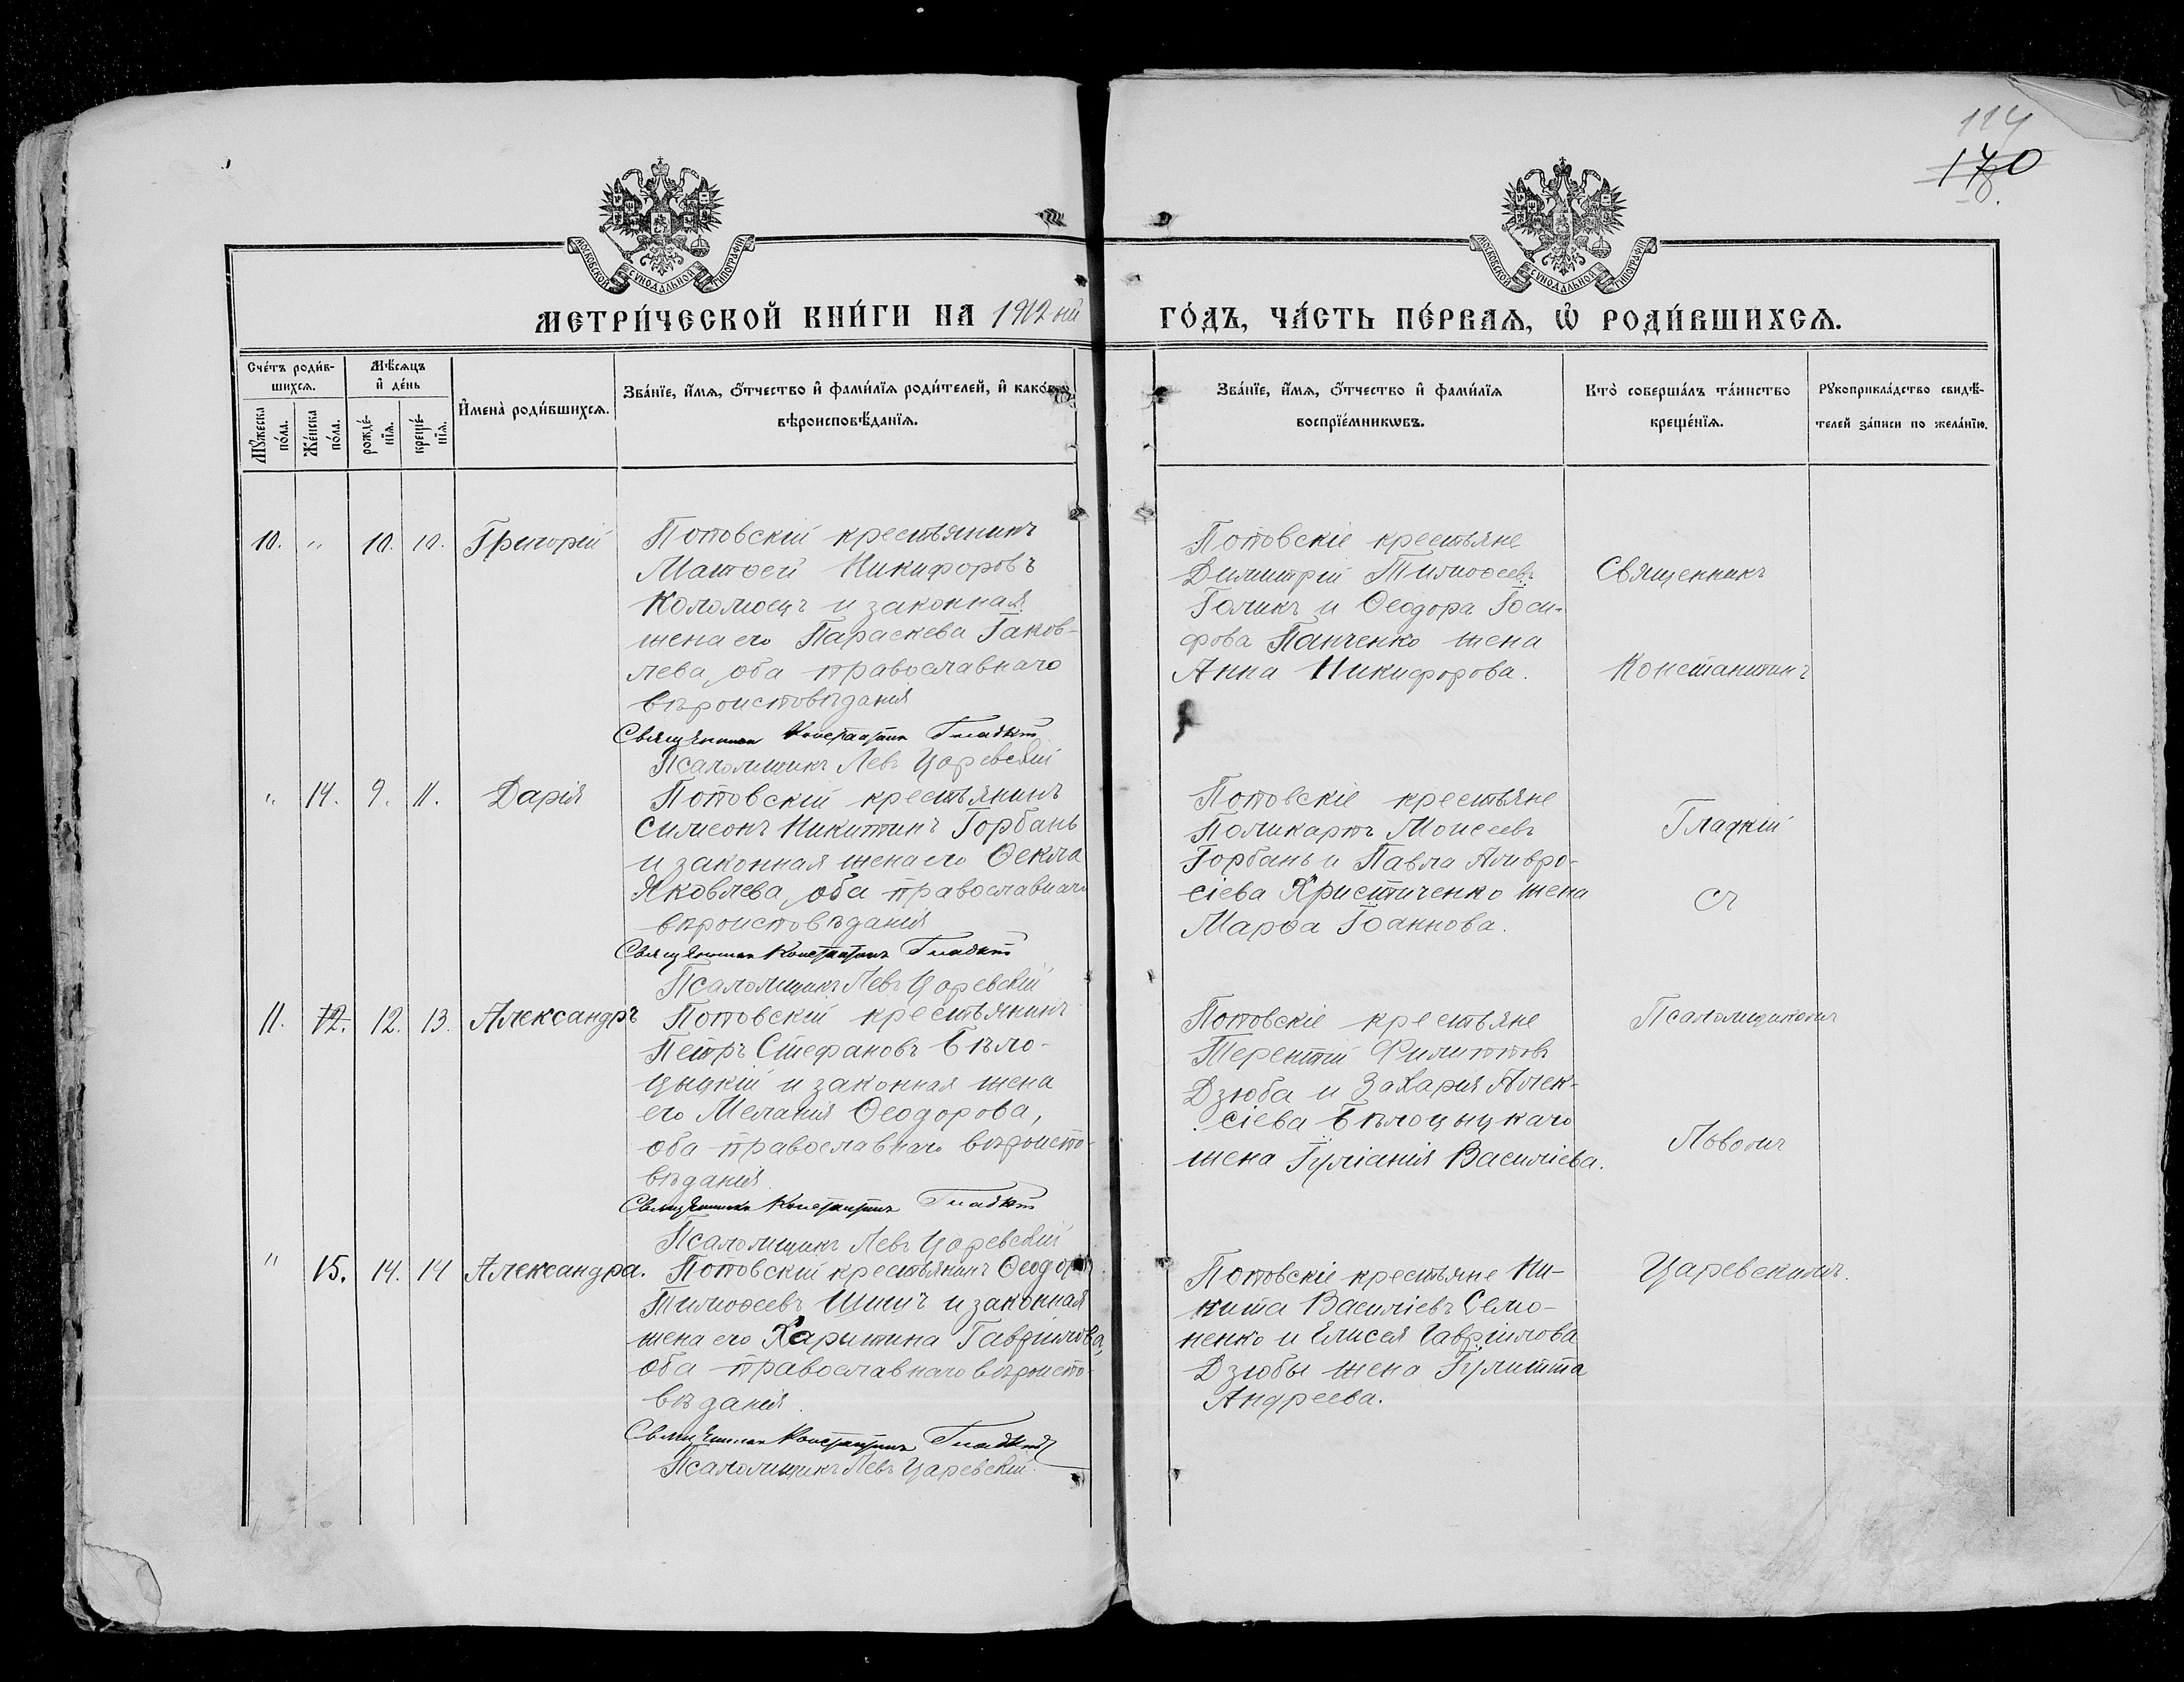 114
170
МОСКОВСКОЙ СѴНОДАЛЬНОЙ ТИПОГРАФІИ
МОСКОВСКОЙ СѴНОДАЛЬНОЙ ТИПОГРАФІИ
МЕТРИ́ЧЕСКОЙ КНИ́ГИ НА 1912 ый
ГО́ДЪ, ЧА́СТЬ ПЕ́РВАѦ, Ѡ҆ РОДИ́ВШИХСѦ.
Сче́тъ роди́в-
шихсѧ.
Мꙋ́жеска по́ла.
Же́нска по́ла.
Мѣ́сѧцъ
и҆ де́нь
рожде́-
нїѧ.
креще́-
нїѧ.
И҆мена̀ роди́вшихсѧ.
Зва́нїе, и҆́мѧ, ѻ҆́тчество и҆ фами́лїѧ роди́телей, и҆ како́гѡ
вѣроисповѣ́данїѧ.
Зва́нїе, и҆́мѧ, ѻ҆́тчество и҆ фами́лїѧ
воспрїе́мникѡвъ.
Кто̀ соверша́лъ та́инство
креще́нїѧ.
Рꙋкоприкла́дство свидѣ́-
телей за́писи по жела́нїю.
10. " 10. 10. Григорій
Поповскій крестьянинъ
Матѳей Никифоровъ
Коломоецъ и законная
жена его Параскева Іаков-
лева, оба православнаго
вѣроисповѣданія
Священникъ Константинъ Гладкій
Псаломщикъ Левъ Царевскій
Поповскіе крестьяне
Димитрій Тимоѳеевъ
Голикъ и Ѳеодора Іоси-
фова Панченко жена
Анна Никифорова.
Священникъ
Константинъ
" 14. 9. 11. Дарія
Поповскій крестьянинъ
Симеонъ Никитинъ Горбань
и законная жена его Ѳекла
Яковлева, оба православнаго
вѣроисповѣданія
Священникъ Константинъ Гладкій
Псаломщикъ Левъ Царевскій
Поповскіе крестьяне
Поликарпъ Моисеевъ
Горбань и Павла Амвро-
сіева Христиченко жена
Марѳа Іоаннова.
Гладкій
съ
11. 12. 12. 13. Александръ
Поповскій крестьянинъ
Петръ Стефановъ Бѣло-
цыцкій и законная жена
его Меланія Ѳеодорова,
оба православнаго вѣроиспо-
вѣданія
Священникъ Константинъ Гладкій
Псаломщикъ Левъ Царевскій
Поповскіе крестьяне
Терентій Филипповъ
Дзюба и Захарія Алек-
сіева Бѣлоцыцкаго
жена Іуліанія Василіева.
Псаломщикомъ
Львомъ
" 15. 14. 14 Александра.
Поповскій крестьянинъ Ѳеодоръ
Тимоѳеевъ и законная
жена его Харитина Гавріилова,
оба православнаго вѣроиспо-
вѣданія.
Священникъ Константинъ Гладкій
Псаломщикъ Левъ Царевскій.
Поповскіе крестьяне Ни-
кита Василіевъ Семо-
ненко и Елисея Гавріилова
Дзюбы жена Іулитта
Андреева.
Царевскимъ.